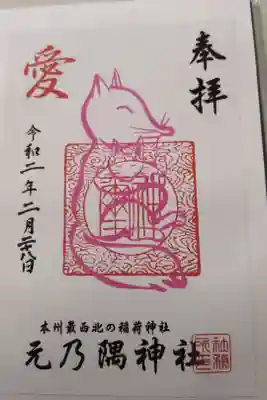 奉拝
愛
令和二年二月二十八日
本州最西北の稲荷神社
元乃隅神社